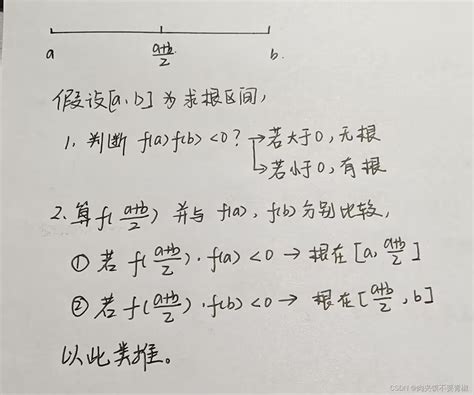 a  a+b/2  b.
假设[a,b]为求根区间,
1, 判断 f(a)f(b)<0? →若大于0,无根
→若小于0,有根
2.算f(a+b/2) 并与 f(a), f(b)分别比较,
① 若 f(a+b/2)·f(a)<0 → 根在[a, a+b/2]
② 若 f(a+b/2)·f(b)<0 → 根在[a+b/2, b]
以此类推。
CSDN @肉夹馍不要青椒